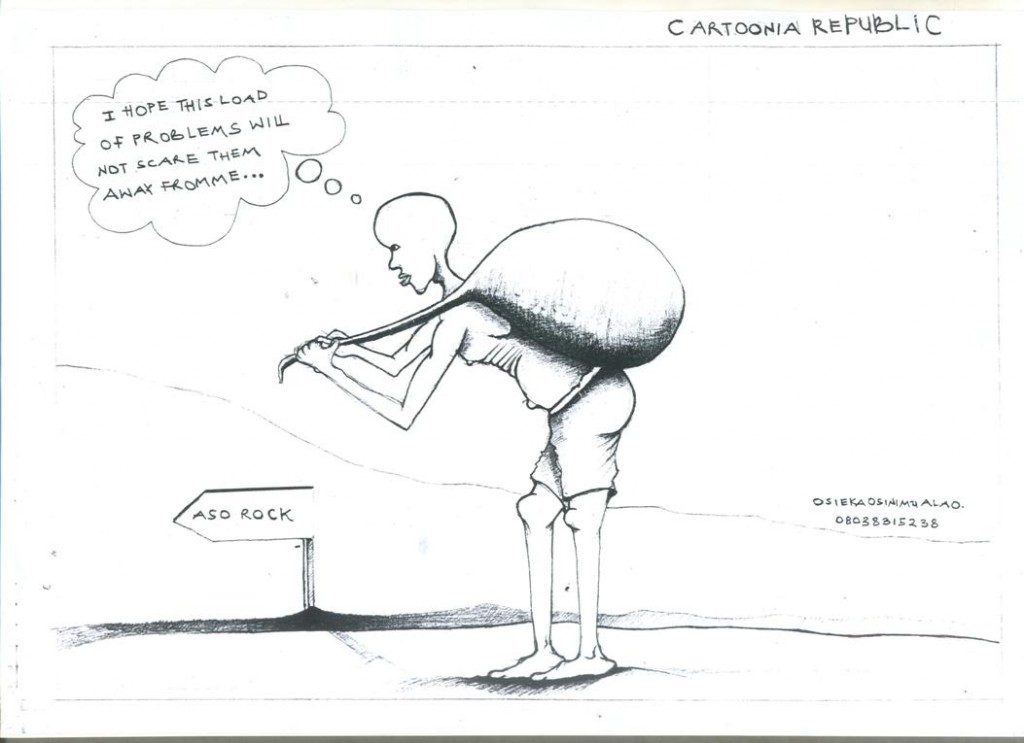 CARTOONIA REPUBLIC
I HOPE THIS LOAD
OF PROBLEMS WILL
NOT SCARE THEM
AWAY FROMME...
ASO ROCK
OSIEKAOSINIMU ALAO.
08038315238